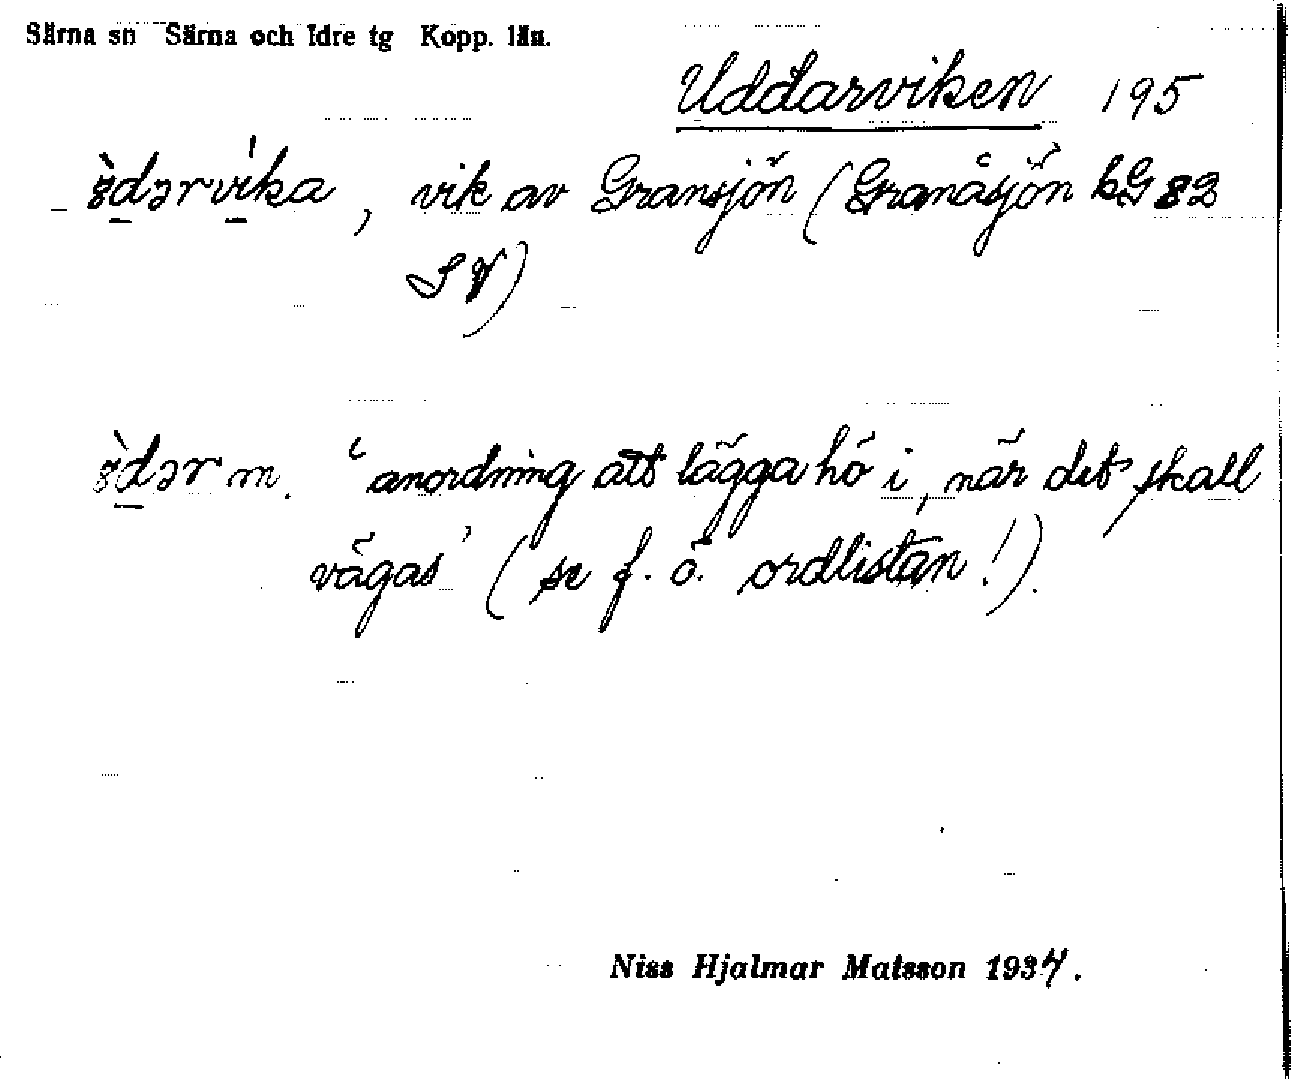 Särna sn Särna och Idre tg Kopp. län.
Uddarviken 195
ȣ̀dərvı̍ka, vik av Gransjön (Granåsjön kG 82
SV)
ȣ̀dər m. ‘anordning att lägga hö i, när det skall
vägas’ (se f. ö. ordlistan!).
Niss Hjalmar Matsson 1934.